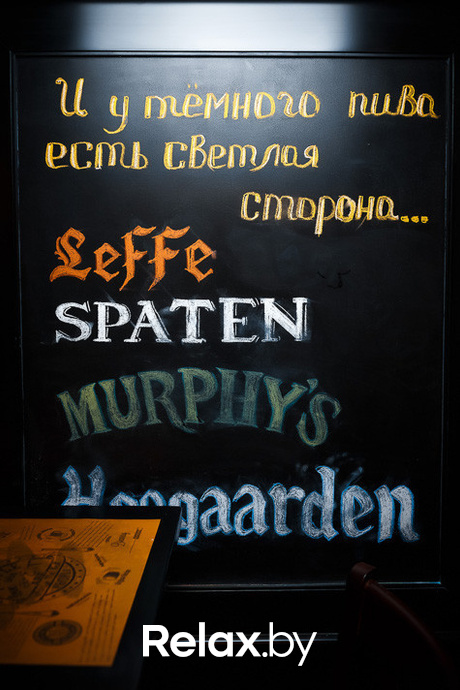 И у тёмного пива
есть светлая
сторона...
Leffe
SPATEN
MURPHY'S
Hoegaarden
Relax.by